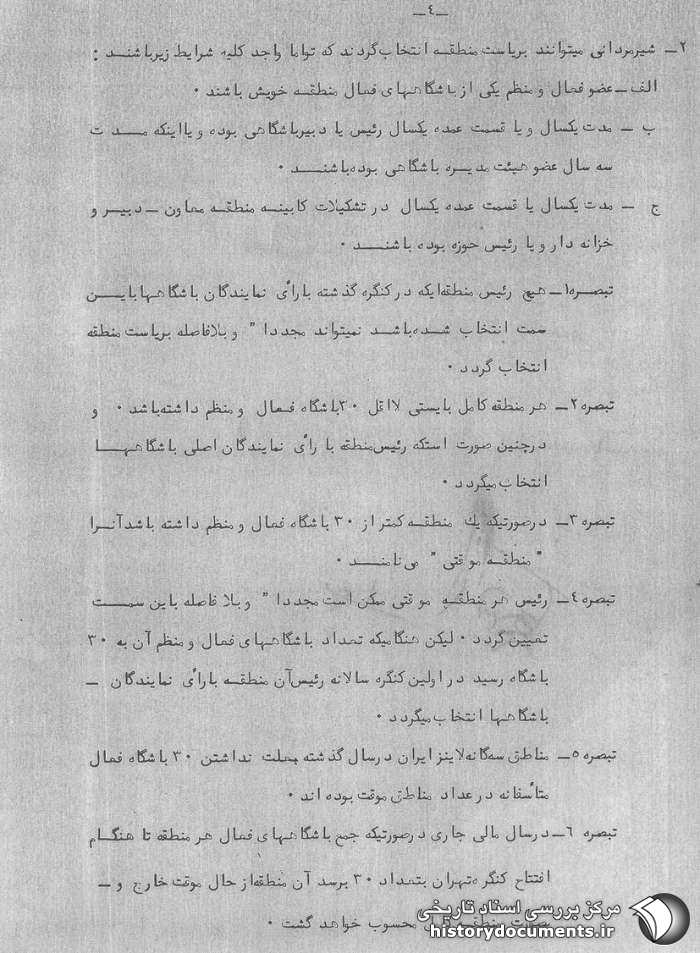 ـ ٤ ـ
٢ـ شیرمردانی میتوانند بریاست منطقه انتخاب گردند که تواما واجد کلیه شرایط زیر باشند :
الف ـ عضو فعال و منظم یکی از باشگاههای فعال منطقه خویش باشند ٠
ب ـ مدت یکسال و یا قسمت عمده یکسال رئیس یا دبیر باشگاهی بوده و یا اینکه مدت
سه سال عضو هیئت مدیره باشگاهی بوده باشند ٠
ج ـ مدت یکسال یا قسمت عمده یکسال در تشکیلات کابینه منطقه معاون ـ دبیر و
خزانه دار و یا رئیس حوزه بوده باشند ٠
تبصره ١ـ هیچ رئیس منطقه ایکه در کنگره گذشته با رأی نمایندگان باشگاهها باین
سمت انتخاب شده باشد نمیتواند مجددا " و بلافاصله بریاست منطقه
انتخاب گردد ٠
تبصره ٢ـ هر منطقه کامل بایستی لااقل ٣٠ باشگاه فعال و منظم داشته باشد ٠ و
درچنین صورت استکه رئیس منطقه با رأی نمایندگان اصلی باشگاهها
انتخاب میگردد ٠
تبصره ٣ـ درصورتیکه یك منطقه کمتر از ٣٠ باشگاه فعال و منظم داشته باشد آنرا
" منطقه موقتی " می نامند ٠
تبصره ٤ـ رئیس هر منطقه موقتی ممکن است مجددا " و بلا فاصله باین سمت
تعیین گردد ٠ لیکن هنگامیکه تعداد باشگاههای فعال و منظم آن به ٣٠
باشگاه رسید در اولین کنگره سالانه رئیس آن منطقه با رأی نمایندگان ـ
باشگاهها انتخاب میگردد ٠
تبصره ٥ـ مناطق سه گانه لاینز ایران درسال گذشته بعلت نداشتن ٣٠ باشگاه فعال
متأسفانه در عداد مناطق موقت بوده اند ٠
تبصره ٦ـ درسال مالی جاری درصورتیکه جمع باشگاههای فعال هر منطقه تا هنگام
افتتاح کنگره تهران بتعداد ٣٠ برسد آن منطقه از حال موقت خارج و ـ
منطقه محسوب خواهد گشت ٠
مرکز بررسی اسناد تاریخی
historydocuments.ir